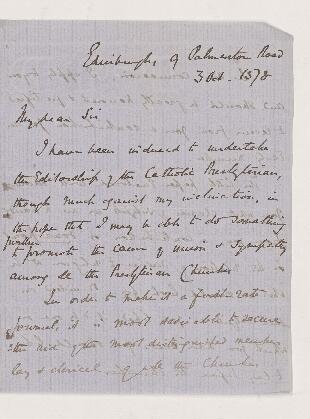 Edinburgh, 9 Palmerston Road
3 Oct. 1878
My dear Sir
I have been induced to undertake
the Editorship of the Catholic Presbyterian,
though much against my inclination, in
the hope that I may be able to do something
further
to promote the cause of union & sympathy
among all the Presbyterian Churches
In order to make it a first rate
Journal, it is most desirable to secure
the aid of the most distinguished members
lay & clerical, of all the Churches